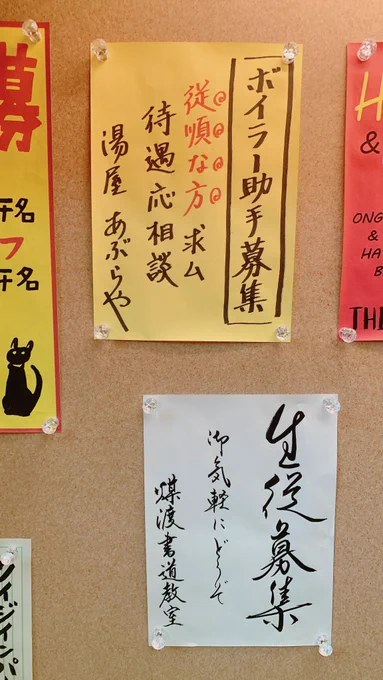 ボイラー助手募集
従順な方求ム
待遇応相談
湯屋 あぶらや
生徒募集
御気軽にどうぞ
煤渡書道教室
募
千名
フ
千名
H
&
ONG
&
HA
B
THE